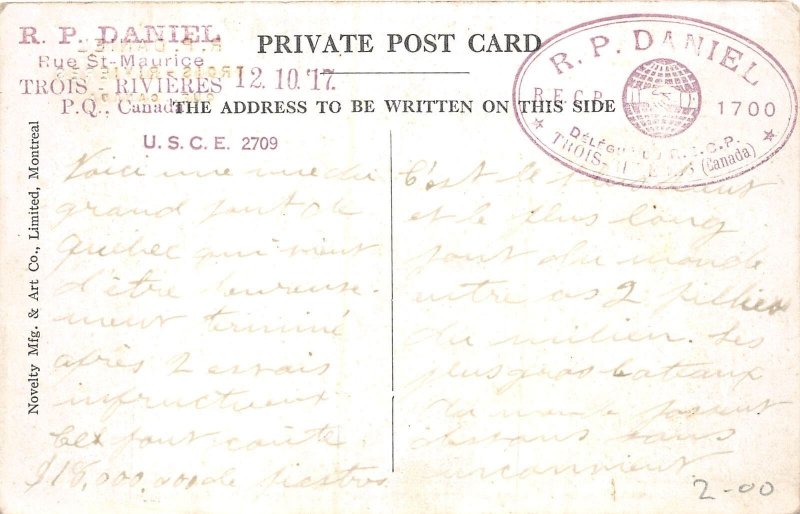 R. P. DANIEL
Rue St-Maurice
TROIS - RIVIÈRES
P.Q., Canada
12. 10. '17.
PRIVATE POST CARD
THE ADDRESS TO BE WRITTEN ON THIS SIDE
U. S. C. E. 2709
R. P. DANIEL
R.E.C.P. 1700
DÉLÉGUÉ R.E.C.P.
TROIS- (Canada)
Novelty Mfg. & Art Co., Limited, Montreal
Voici une vue du
grand pont de
Québec qui vient
d'être heureuse-
ment terminé
après 2 essais
infructueux.
Cet pont coûte
$18,000,000 de piastres
C'est le plus
et le plus long
pont du monde
entre ces 2 pilliers
du milieu. Les
plus gros bateaux
du monde passent
dessous sans
inconvenient
2-00